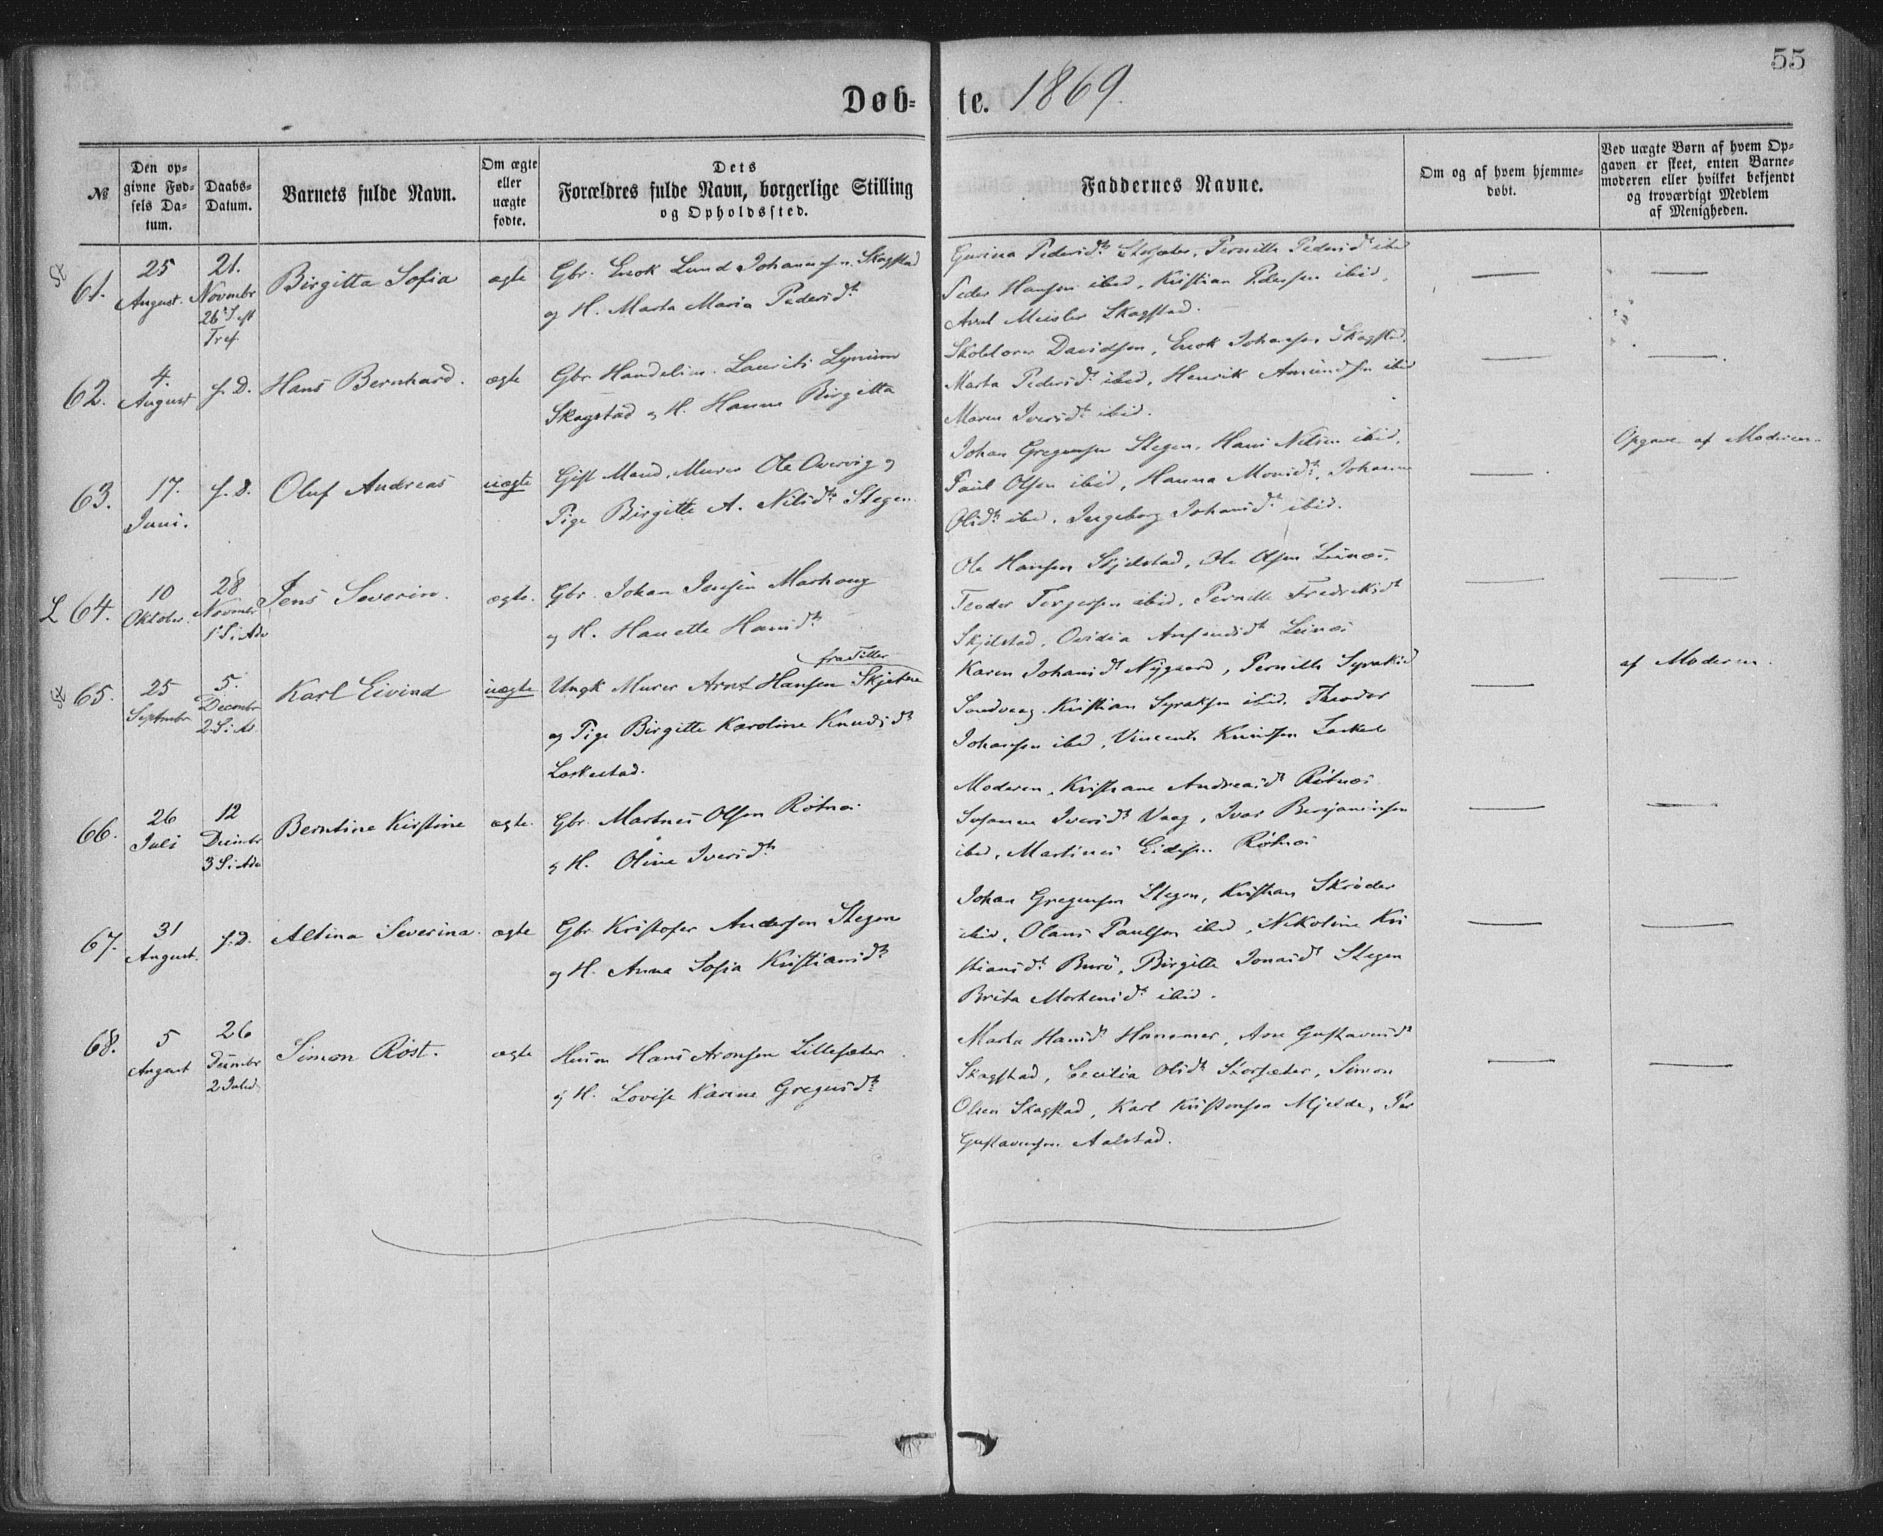 55
Døb- te. 1869.
№
Den op-
givne Fød-
sels Da-
tum.
Daabs-
Datum.
Barnets fulde Navn.
Om ægte
eller
uægte
fødte.
Dets
Forældres fulde Navn, borgerlige Stilling
og Opholdssted.
Faddernes Navne.
Om og af hvem hjemme-
døbt.
Ved uægte Børn af hvem Op-
gaven er skeet, enten Barne-
moderen eller hvilket bekjendt
og troværdigt Medlem
af Menigheden.
61.
25
August.
21.
Novmbr
26 S. eft
Tref.
Birgitta Sofia
ægte
Gbr. Enok Lund Johannessen Skagstad
og H. Marta Maria Pedersdt
Gurina Pedersdt Storsæter, Pernille Pedersdt ibid
Peder Hansen ibid, Kristian Pedersen ibid,
Meisler Skagstad.
62.
4.
August
s. D.
Hans Bernhard.
ægte
Gbr. Handelsm. Laurits
Skagstad og H. Hanna Birgitta
Davidsen, Enok Johansen Skagstad.
Marta Pedersdt ibid, Henrik Amundsen ibid
Maren Iversdt ibid.
63.
17.
Juni.
s. D.
Oluf Andreas
uægte
Gift Mand, Murer Ole Overvig og
Pige Birgitte A. Nilsdt Stegen.
Johan Gregersen Stegen, Hans Nilsen ibid,
Paul Olsen ibid, Hanna Monsdt, Johanna
Olsdt ibid, Ingeborg Johansdt ibid.
Opgave af Moderen.
L 64.
10
Oktober.
28
Novmbr
1 S. i Adv
Jens Severin.
ægte.
Gbr. Johan Jensen Marhaug
og H. Hanette Hansdt
Ole Hansen Skjelstad, Ole Olsen Leines,
Teodor Torgersen ibid, Pernille Fredriksdt
Skjelstad, Ovidia Amundsdt Leines
65.
25
Septmbr
5.
Decembr
2 S. i Ad
Karl Eivind
uægte
fra Tiller
Ungk. Murer Arnt Hansen Skjetne
og Pige Birgitte Karoline Knudsdt
Laskestad.
Karen Johansdt Nygaard, Pernille Syraksdt
Sandvaag, Kristian Syraksen ibid, Theodor
Johansen ibid, Vincents Knudsen Laskest
af Moderen.
66.
26
Juli
12
Decmbr
3 S. i Adv
Berntine Kirstine
ægte.
Gbr. Martines Olsen Rotnes
og H. Oline Iversdt
Moderen, Kristiane Andreasdt Rotnes
Susanna Iversdt Vaag, Ivar Benjaminsen
ibid, Martines Eidesen Rotnes
67.
31
August.
s. D.
Altina Severina.
ægte
Gbr. Kristofer Andersen Stegen
og H. Anna Sofia Kristiansdt
Johan Gregersen Stegen, Kristian Skrøder
ibid, Olaus Paulsen ibid, Nikoline Kri
stiansdt Burø, Birgitte Jonasdt Stegen
Brita Mortensdt ibid.
68.
5
August
26
Decmbr
2 Juled.
Simon Røst.
ægte
Husm. Hans Aronsen Lillesæter
og H. Lovise Karine Gregersdt
Marta Hansdt Hammer, Ane Gustavsdt
Skagstad, Cecilia Olsdt Storsæter, Simon
Olsen Skagstad, Karl Kristensen Mjelde, Per
Gustavsen Aalstad.